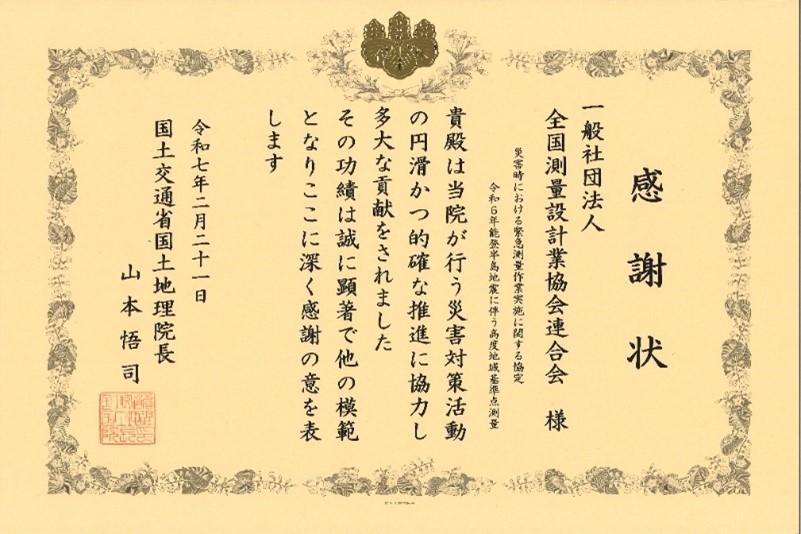 感謝状
一般社団法人
全国測量設計業協会連合会 様
災害時における緊急測量作業実施に関する協定
令和6年能登半島地震に伴う高度地域基準点測量
貴殿は当院が行う災害対策活動
の円滑かつ的確な推進に協力し
多大な貢献をされました
その功績は誠に顕著で他の模範
となりここに深く感謝の意を表
します
令和七年二月二十一日
国土交通省国土地理院長
山本悟司